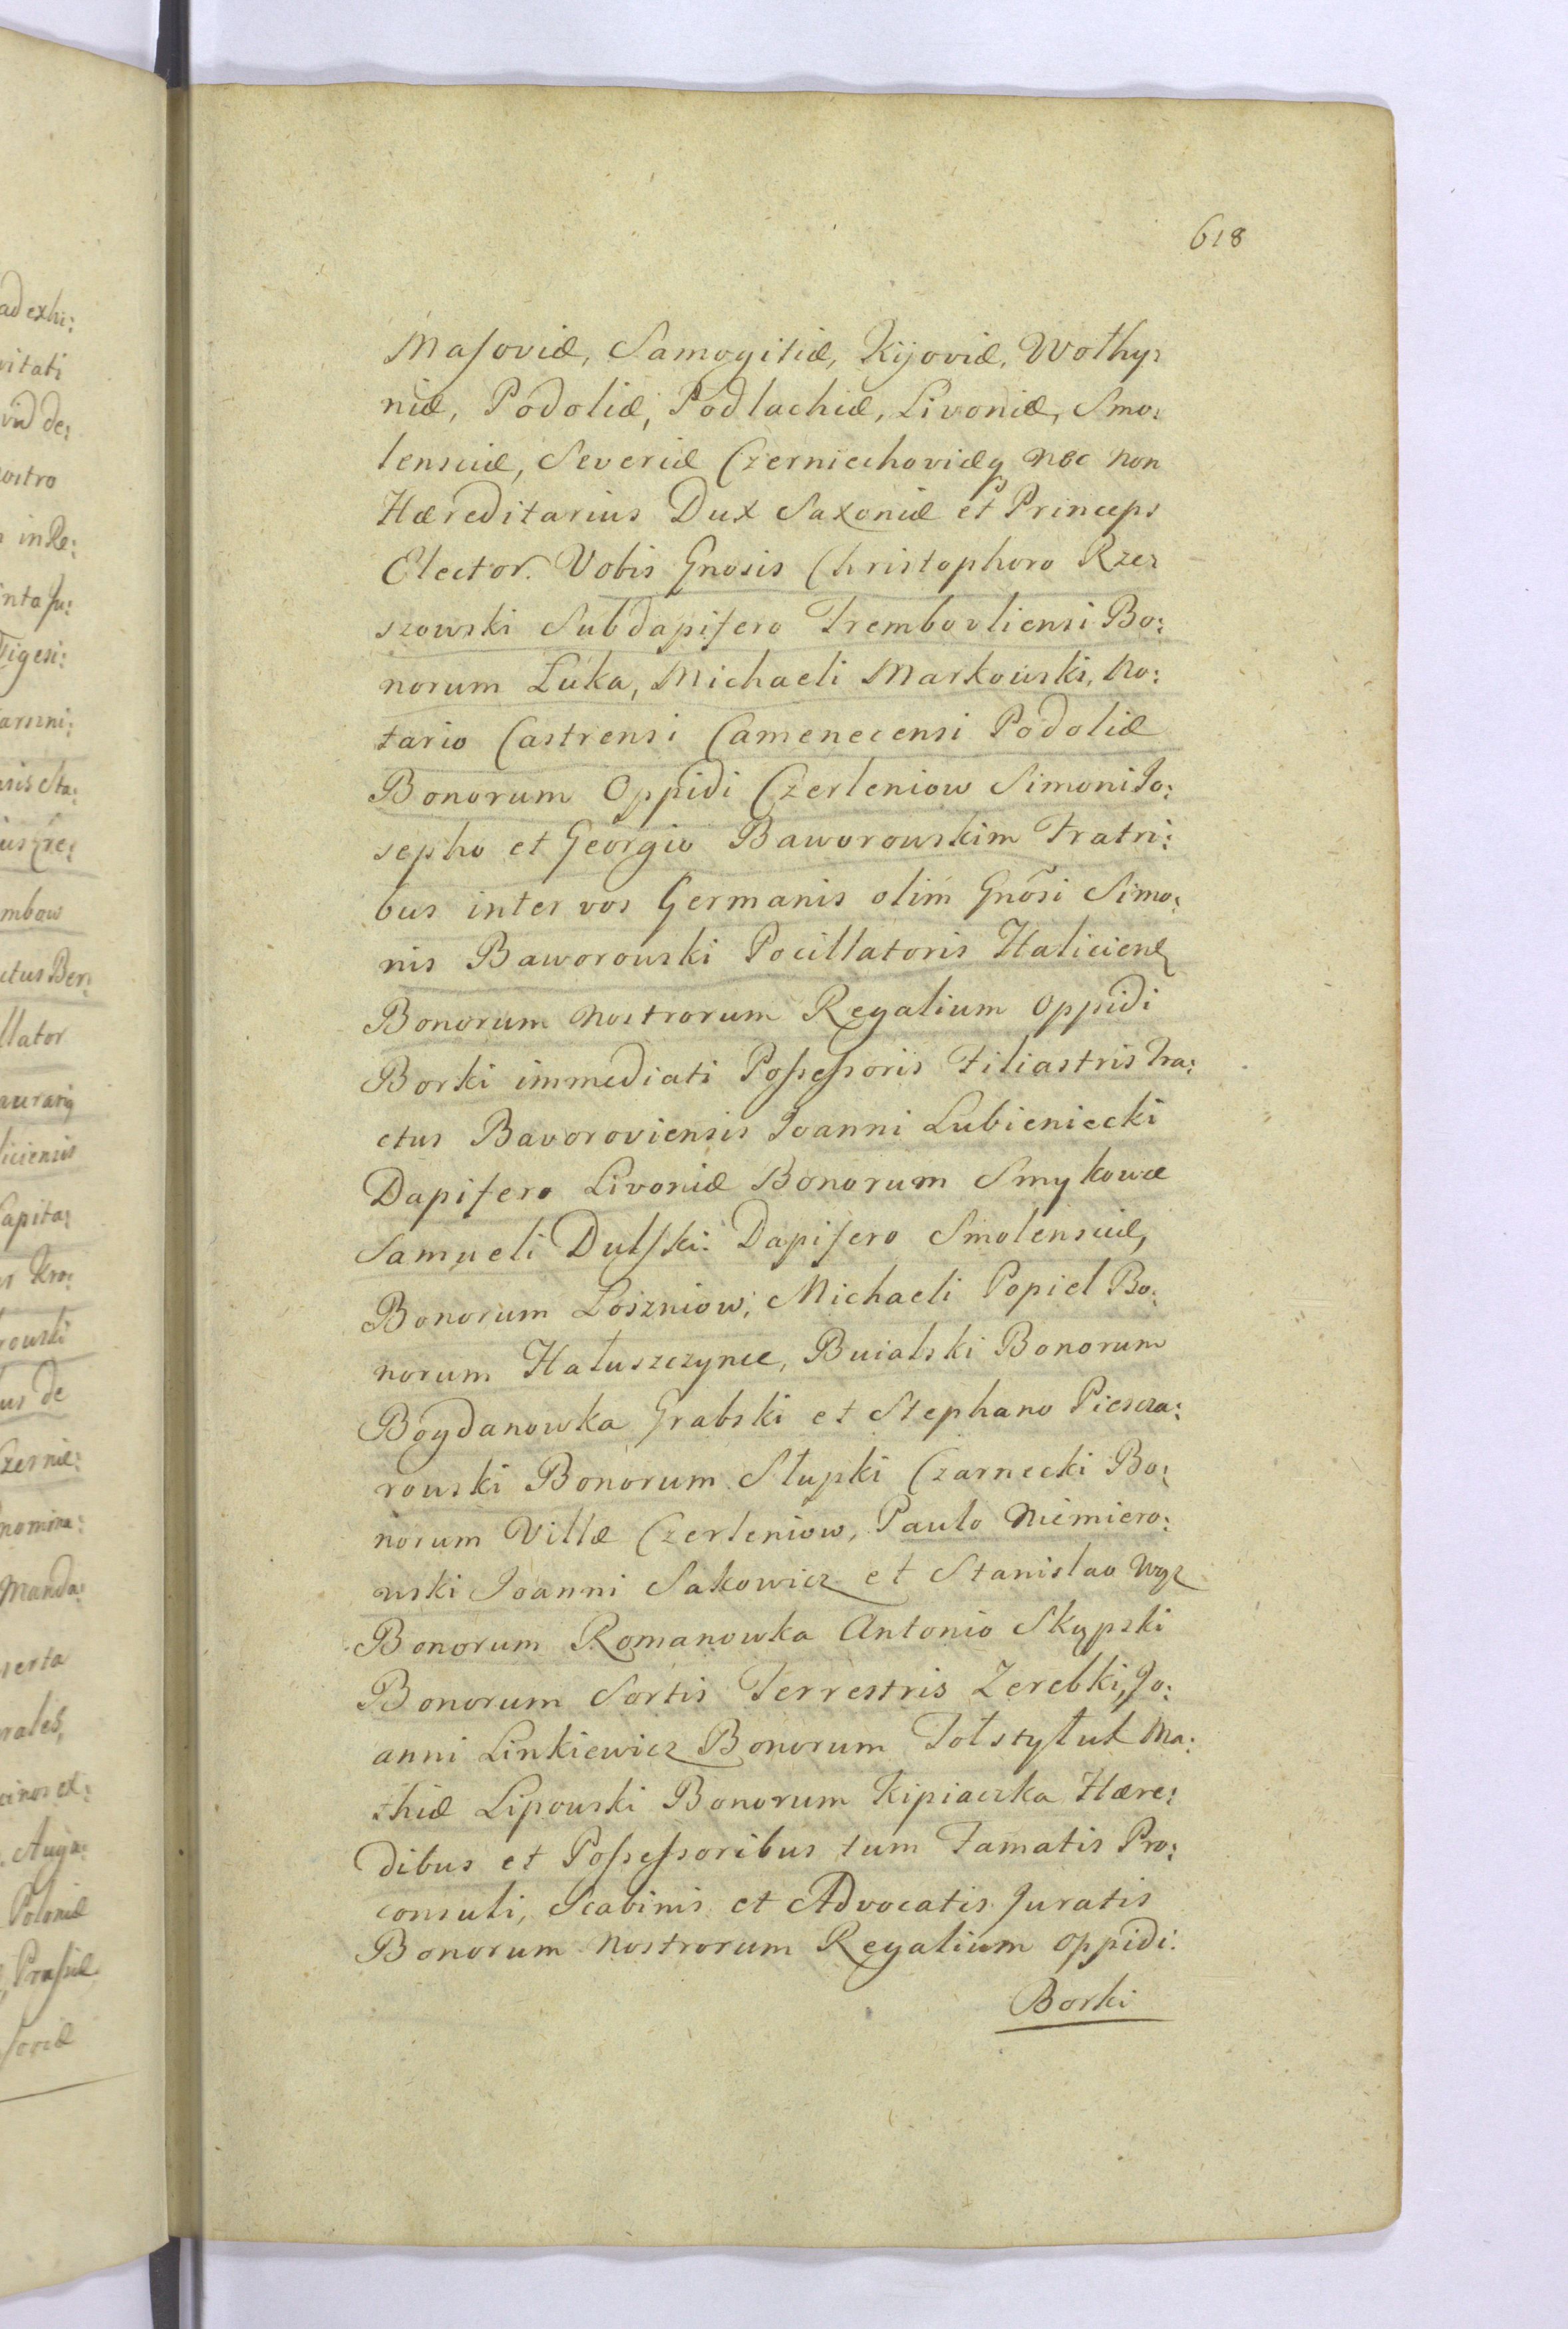 618
Masoviæ, Samogitiæ, Kijoviæ, Wołhy:
niæ, Podoliæ, Podlachiæ, Livoniæ, Smo:
lensciæ, Severiæ Czerniechoviæq nec non
Hæreditarius Dux Saxoniæ et Princeps
Elector. Vobis Gnosis Christophoro Rze:
szowski Subdapifero Trembovliensi Bo:
norum Łuka, Michaeli Markowski, No:
tario Castrensi Camenecensi Podoliæ
Bonorum Oppidi Czerleniow Simoni Jo:
sepho et Georgio Baworowskim Fratri:
bus inter vos Germanis olim Gnosi Simo:
nis Baworowski Pocillatoris Haliciens
Bonorum nostrorum Regalium Oppidi
Borki immediati Possessoris Filiastris Tra:
ctus Bavoroviensis Joanni Lubieniecki
Dapifero Livoniæ Bonorum Smykowce
Samueli Dulski Dapifero Smolensciæ,
Bonorum Łoszniow, Michaeli Popiel Bo:
norum Hałuszczynce, Buialski Bonorum
Bogdanowka Grabski et Stephano Piescza:
rowski Bonorum Słupki Czarnecki Bo:
norum Villæ Czerleniow, Paulo Niemiero:
wski Joanni Sakowicz et Stanislao
Bonorum Romanowka Antonio Skypski
Bonorum Sortis Terrestris Zerebki, Jo:
anni Linkiewicz Bonorum Tołstyłuk Ma:
thiæ Lipowski Bonorum Kipiaczka Hære:
dibus et Possessoribus tum Famatis Pro:
consuli, Scabinis et Advocatis Juratis
Bonorum nostrorum Regalium Oppidi
Borki
ad exhi:
vitati
vid de:
nostro
in Re:
Tigesi:
mbow
ctus Ber:
llator
liciensis
Capita:
rowski
us de
Czernie:
nomina:
Manda:
serta
rales,
Augu:
Poloniæ
, Prussiæ
soviæ